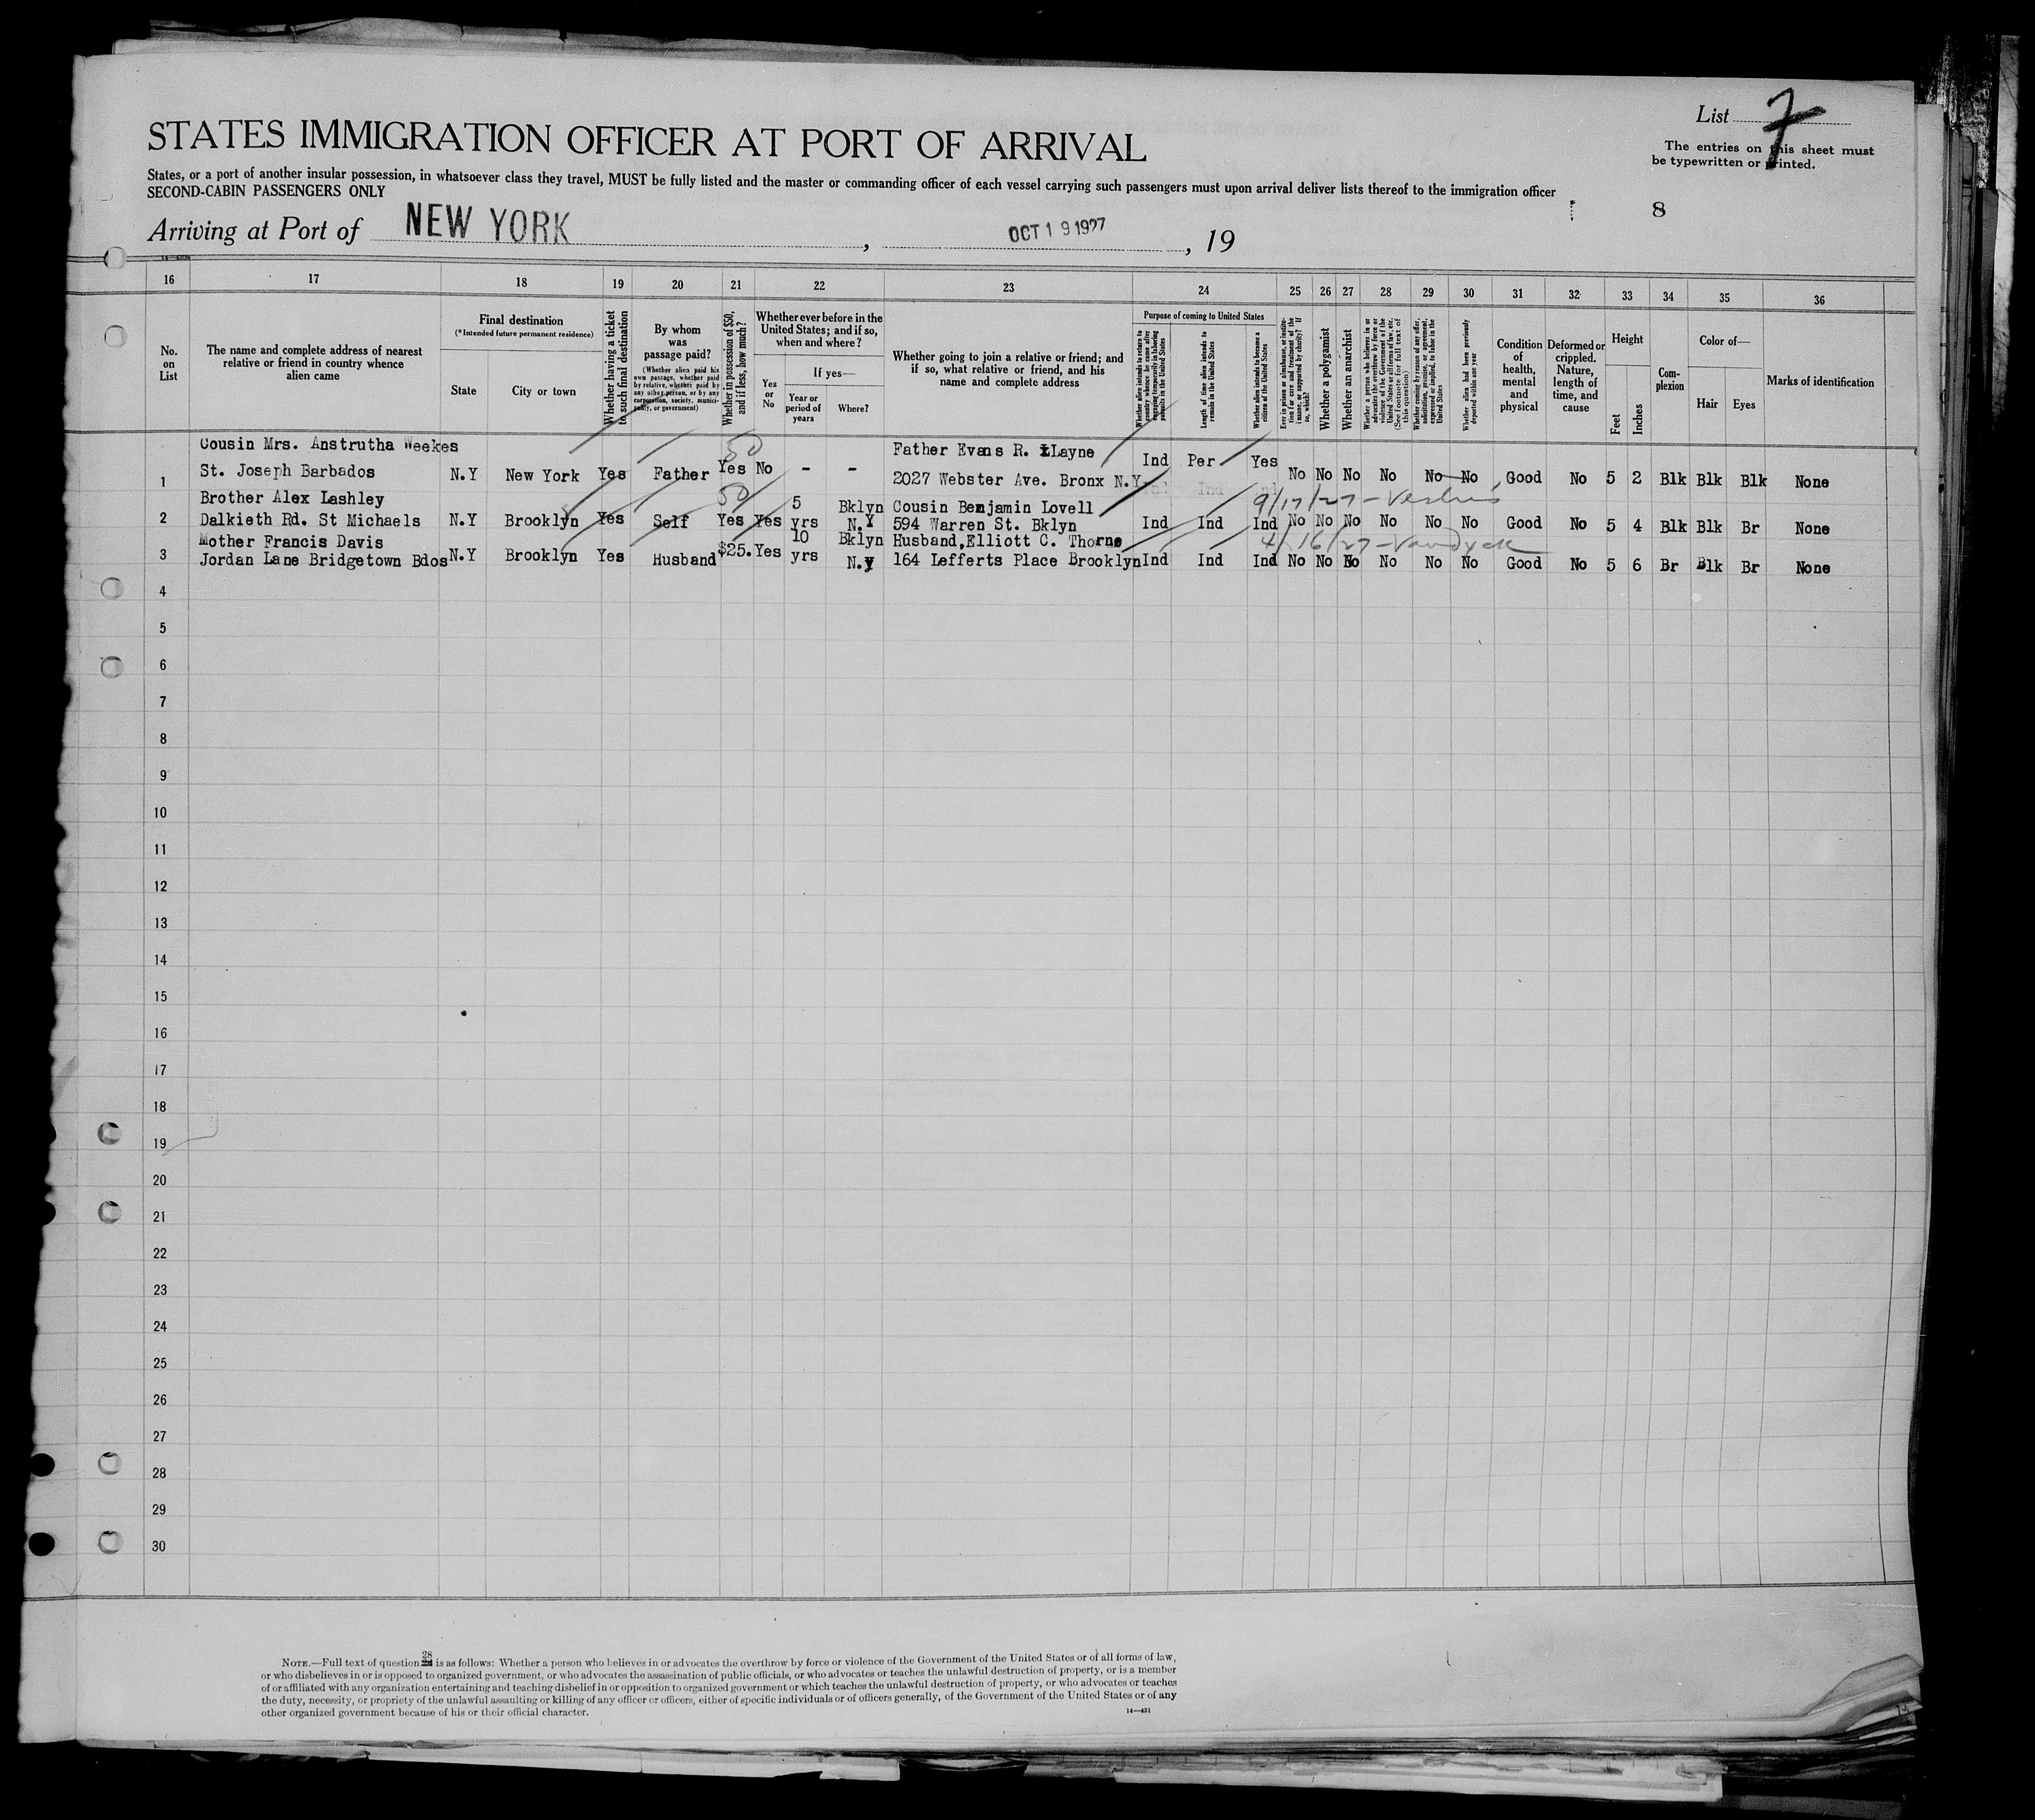 List 7
The entries on this sheet must
be typewritten or printed.
STATES IMMIGRATION OFFICER AT PORT OF ARRIVAL
States, or a port of another insular possession, in whatsoever class they travel, MUST be fully listed and the master or commanding officer of each vessel carrying such passengers must upon arrival deliver lists thereof to the immigration officer
SECOND-CABIN PASSENGERS ONLY
8
Arriving at Port of NEW YORK , OCT 19 1927 , 19
16 17 18 19 20 21 22 23 24 25 26 27 28 29 30 31 32 33 34 35 36
No. on List
The name and complete address of nearest relative or friend in country whence alien came
Final destination
(*Intended future permanent residence)
State
City or town
Whether having a ticket to such final destination
By whom was passage paid?
(Whether alien paid his own passage, whether paid by relative, whether paid by any other person, or by any corporation, society, municipality, or government)
Whether in possession of $50, and if less, how much?
Whether ever before in the United States; and if so, when and where?
Yes or No
If yes—
Year or period of years
Where?
Whether going to join a relative or friend; and if so, what relative or friend, and his name and complete address
Purpose of coming to United States
Whether alien intends to return to country whence he came after engaging temporarily in laboring pursuits in the United States
Length of time alien intends to remain in the United States
Whether alien intends to become a citizen of the United States
Ever in prison or almshouse, or institution for care and treatment of the insane, or supported by charity? If so, which?
Whether a polygamist
Whether an anarchist
Whether a person who believes in or advocates the overthrow by force or violence of the Government of the United States or all forms of law, etc. (See footnote for full text of this question)
Whether coming by reason of any offer, solicitation, promise, or agreement, expressed or implied, to labor in the United States
Whether alien had been previously deported within one year
Condition of health, mental and physical
Deformed or crippled. Nature, length of time, and cause
Height
Feet
Inches
Complexion
Color of—
Hair
Eyes
Marks of identification
Cousin Mrs. Anstrutha Weekes 50 Father Evans R. Layne
1 St. Joseph Barbados N.Y New York Yes Father Yes No - - 2027 Webster Ave. Bronx N.Y. Ind Per Yes No No No No No No Good No 5 2 Blk Blk Blk None
Brother Alex Lashley 50 5 Bklyn Cousin Benjamin Lovell 9/17/27 - Vestris
2 Dalkieth Rd. St Michaels N.Y Brooklyn Yes Self Yes Yes yrs N.Y 594 Warren St. Bklyn Ind Ind Ind No No No No No No Good No 5 4 Blk Blk Br None
Mother Francis Davis 10 Bklyn Husband,Elliott C. Thorne 4/16/27 - Vandyck
3 Jordan Lane Bridgetown Bdos N.Y Brooklyn Yes Husband $25. Yes yrs N.Y 164 Lefferts Place Brooklyn Ind Ind Ind No No No No No No Good No 5 6 Br Blk Br None
4
5
6
7
8
9
10
11
12
13
14
15
16
17
18
19
20
21
22
23
24
25
26
27
28
29
30
NOTE.—Full text of question 28 is as follows: Whether a person who believes in or advocates the overthrow by force or violence of the Government of the United States or of all forms of law,
or who disbelieves in or is opposed to organized government, or who advocates the assassination of public officials, or who advocates or teaches the unlawful destruction of property, or is a member
of or affiliated with any organization entertaining and teaching disbelief in or opposition to organized government or which teaches the unlawful destruction of property, or who advocates or teaches
the duty, necessity, or propriety of the unlawful assaulting or killing of any officer or officers, either of specific individuals or of officers generally, of the Government of the United States or of any
other organized government because of his or their official character.
14—431